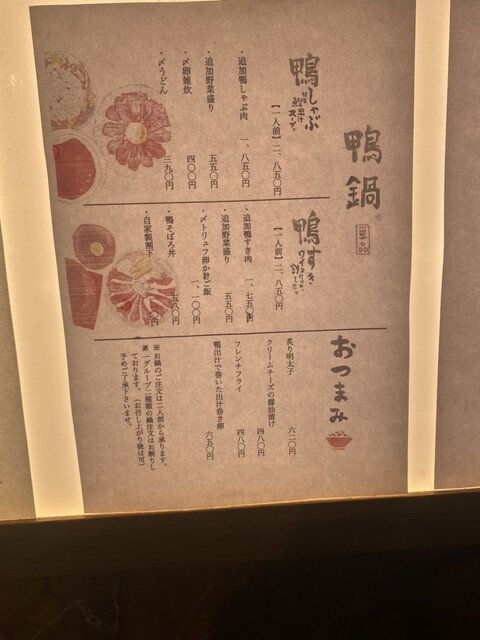 鴨鍋
鴨しゃぶ
スープで
【一人前】二、八五〇円
・追加鴨しゃぶ肉 一、八五〇円
・追加野菜盛り 五五〇円
・〆卵雑炊 四〇〇円
・〆うどん 三九〇円
鴨すき
【一人前】二、八五〇円
・追加鴨すき肉 一、七五〇円
・追加野菜盛り 五五〇円
・〆トリュフ卵かけご飯 一、一〇〇円
・鴨そぼろ丼 五八〇円
・自家製割下 円
おつまみ
炙り明太子 六二〇円
クリームチーズの醤油漬け 四八〇円
フレンチフライ 四八〇円
鴨出汁で巻いた出汁巻き卵 六五〇円
※お鍋のご注文は二人前から承ります。
※一グループ二種類の鍋注文はお断りし
ております。（お召し上がり後は可）
予めご了承下さいませ。